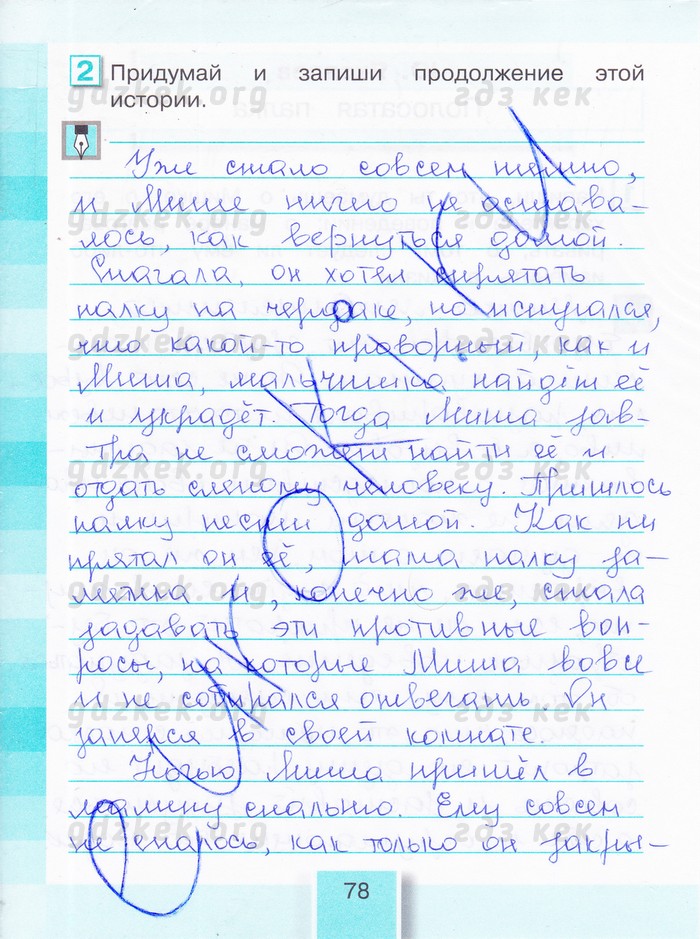 2 Придумай и запиши продолжение этой
истории.
Уже стало совсем темно,
и Мише ничего не остава-
лось, как вернуться домой.
Сначала, он хотел спрятать
палку на чердаке, но испугался,
что какой-то проворный, как и
Миша, мальчишка найдёт её
и украдёт. Тогда Миша зав-
тра не сможет найти её и
отдать слепому человеку. Пришлось
палку нести домой. Как ни
прятал он её, мама палку за-
метила и, конечно же, стала
задавать эти противные воп-
росы, на которые Миша вовсе
и не собирался отвечать. Он
заперся в своей комнате.
Ночью Миша пришёл в
мамину спальню. Ему совсем
не спалось, как только он закры-
78
gdzkek.org гдз кек
gdzkek.org гдз кек
gdzkek.org гдз кек
gdzkek.org гдз кек
gdzkek.org гдз кек
gdzkek.org гдз кек
gdzkek.org гдз кек